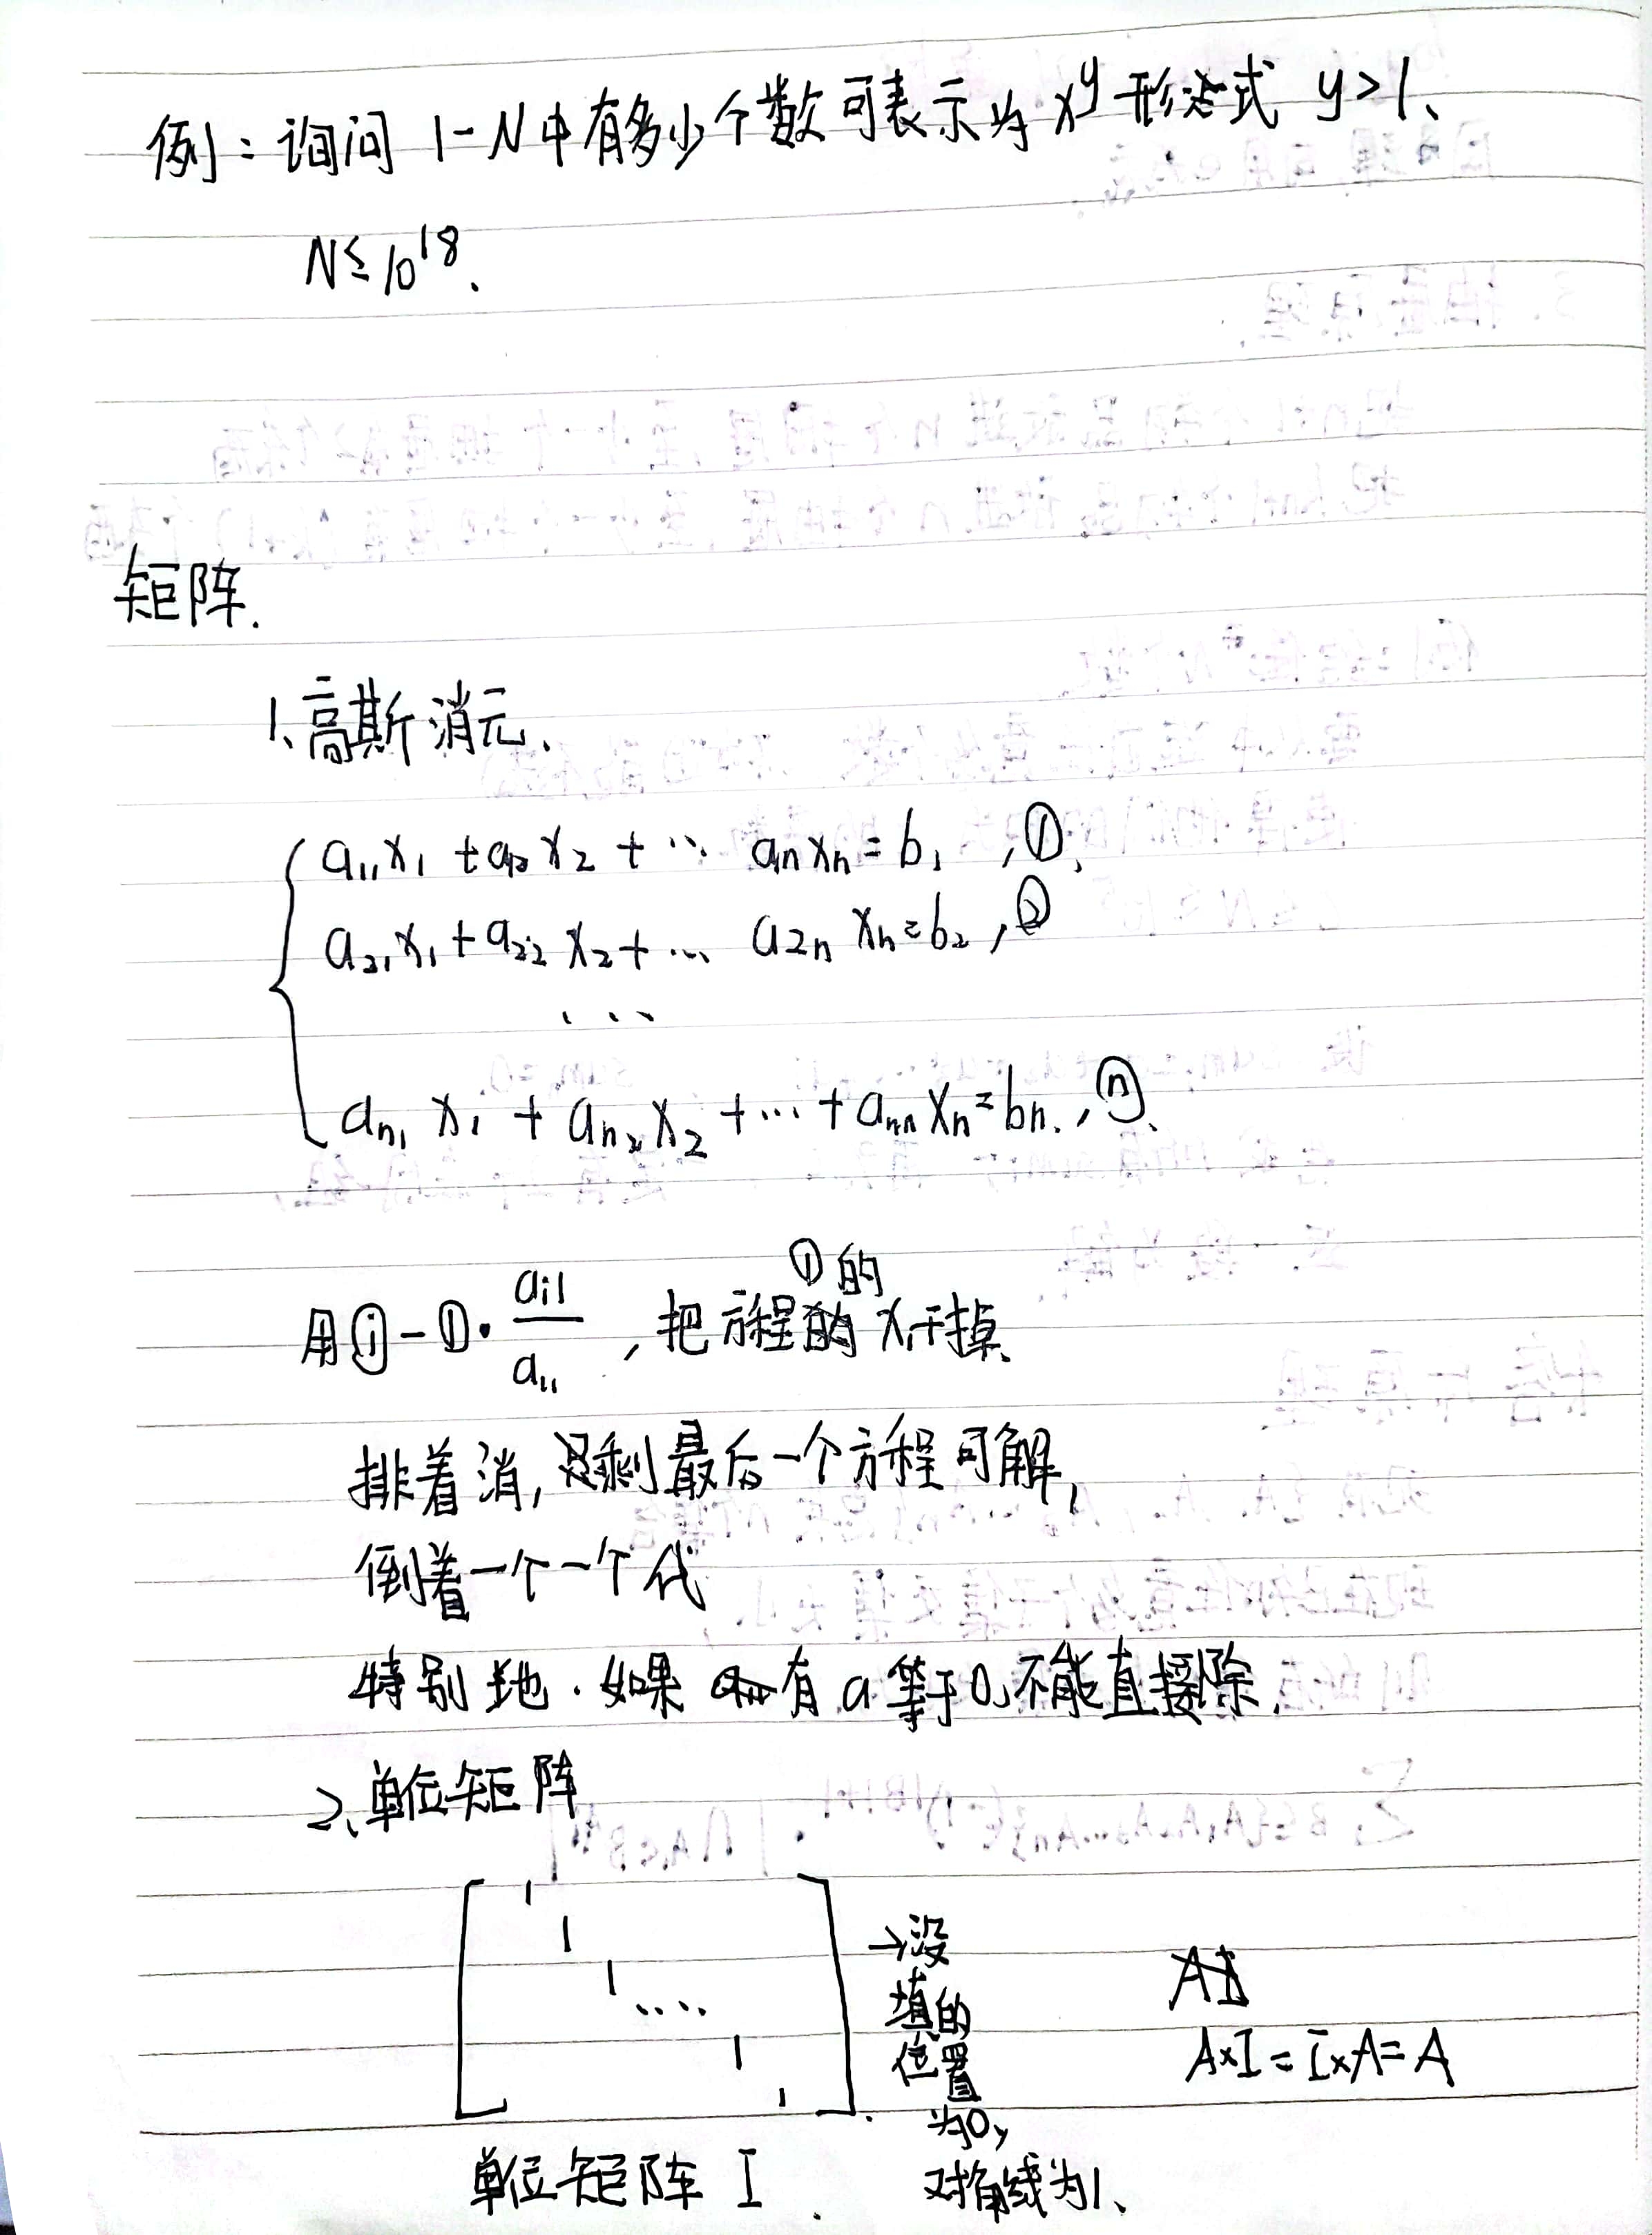 例：询问 1-N中有多少个数可表示为 x^y 形式 y>1、
N≤10^18、
矩阵.
1、高斯消元、
a₁₁x₁ + a₁₂x₂ + … aₙxₙ = b₁ , ①,
a₂₁x₁ + a₂₂x₂ + … a₂ₙxₙ = b₂ , ②
...
aₙ₁x₁ + aₙ₂x₂ + … + aₙₙxₙ = bₙ. , ⓝ、
用ⓘ-①·aᵢ₁/a₁₁ , 把方程①的x₁干掉、
排着消, 剩最后一个方程可解,
倒着一个一个代
特别地. 如果有a等于0,不能直接除.
2、单位矩阵
1
1 →没
1 .... 填的
1 位置
1 为0,
A×I = I×A = A
单位矩阵 I . 对角线为1、